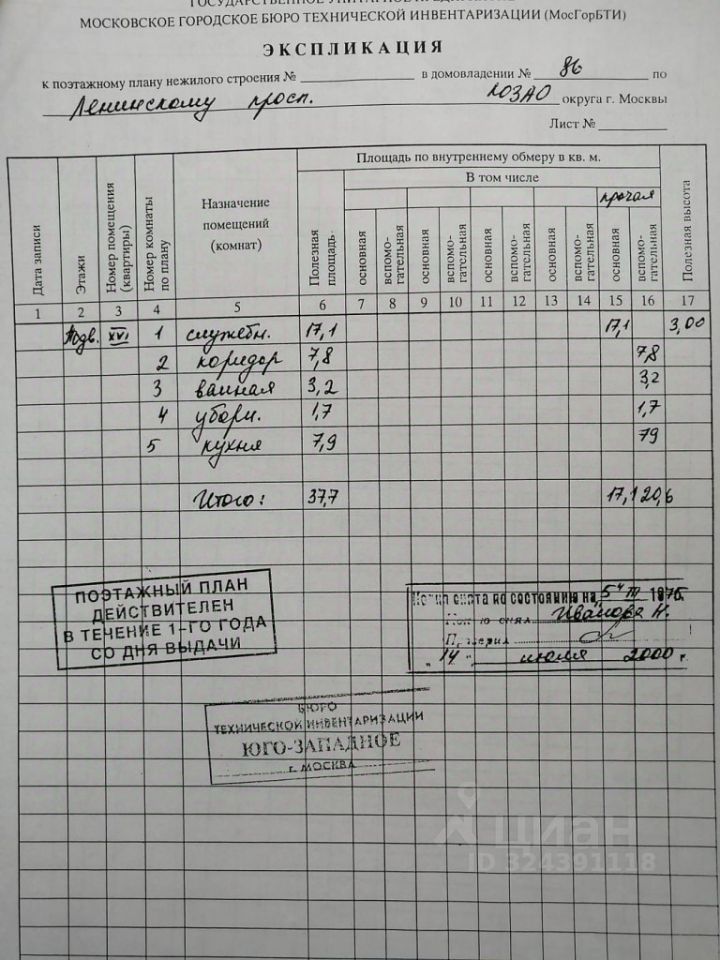 МОСКОВСКОЕ ГОРОДСКОЕ БЮРО ТЕХНИЧЕСКОЙ ИНВЕНТАРИЗАЦИИ (МосГорБТИ)
ЭКСПЛИКАЦИЯ
к поэтажному плану нежилого строения № в домовладении № 86 по
Ленинскому просп. ЮЗАО округа г. Москвы
Лист №
Дата записи
Этажи
Номер помещения (квартиры)
Номер комнаты по плану
Назначение
помещений
(комнат)
Площадь по внутреннему обмеру в кв. м.
Полезная площадь
В том числе
прочая
основная вспомо-гательная основная вспомо-гательная основная вспомо-гательная основная вспомо-гательная основная вспомо-гательная
Полезная высота
1 2 3 4 5 6 7 8 9 10 11 12 13 14 15 16 17
Подв. XVI 1 служебн. 17,1 17,1 3,00
2 коридор 7,8 7,8
3 ванная 3,2 3,2
4 уборн. 1,7 1,7
5 кухня 7,9 79
Итого: 37,7 17,1 20,6
ПОЭТАЖНЫЙ ПЛАН
ДЕЙСТВИТЕЛЕН
В ТЕЧЕНИЕ 1-ГО ГОДА
СО ДНЯ ВЫДАЧИ
Копия снята по состоянию на 5 III 1976.
Копию снял Иванова Н.
Проверил
"14" июля 2000 г.
БЮРО
ТЕХНИЧЕСКОЙ ИНВЕНТАРИЗАЦИИ
ЮГО-ЗАПАДНОЕ
г. МОСКВА
циан
ID 324391118